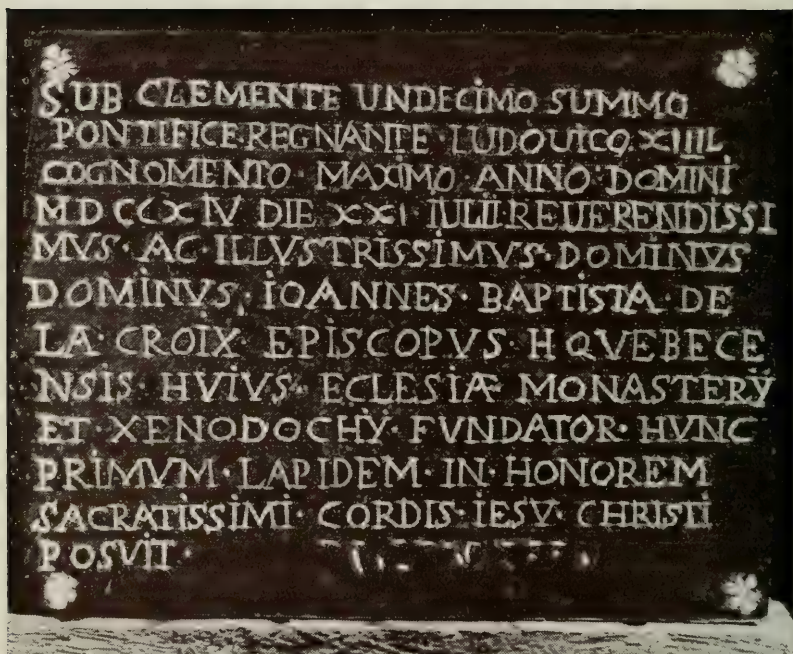 SUB CLEMENTE UNDECIMO SUMMO
PONTIFICE·REGNANTE·LUDOUICO·XIIII
COGNOMENTO·MAXIMO·ANNO·DOMINI
MDCCXIV DIE XXI IULII·REUERENDISSI
MVS·AC·ILLVSTRISSIMVS·DOMINVS
DOMINVS·IOANNES·BAPTISTA·DE
LA·CROIX·EPISCOPVS·H QVEBECE
NSIS·HVIVS·ECLESIÆ·MONASTERŸ
ET·XENODOCHŸ·FVNDATOR·HVNC
PRIMVM·LAPIDEM·IN·HONOREM
SACRATISSIMI·CORDIS·IESV·CHRISTI
POSVIT·